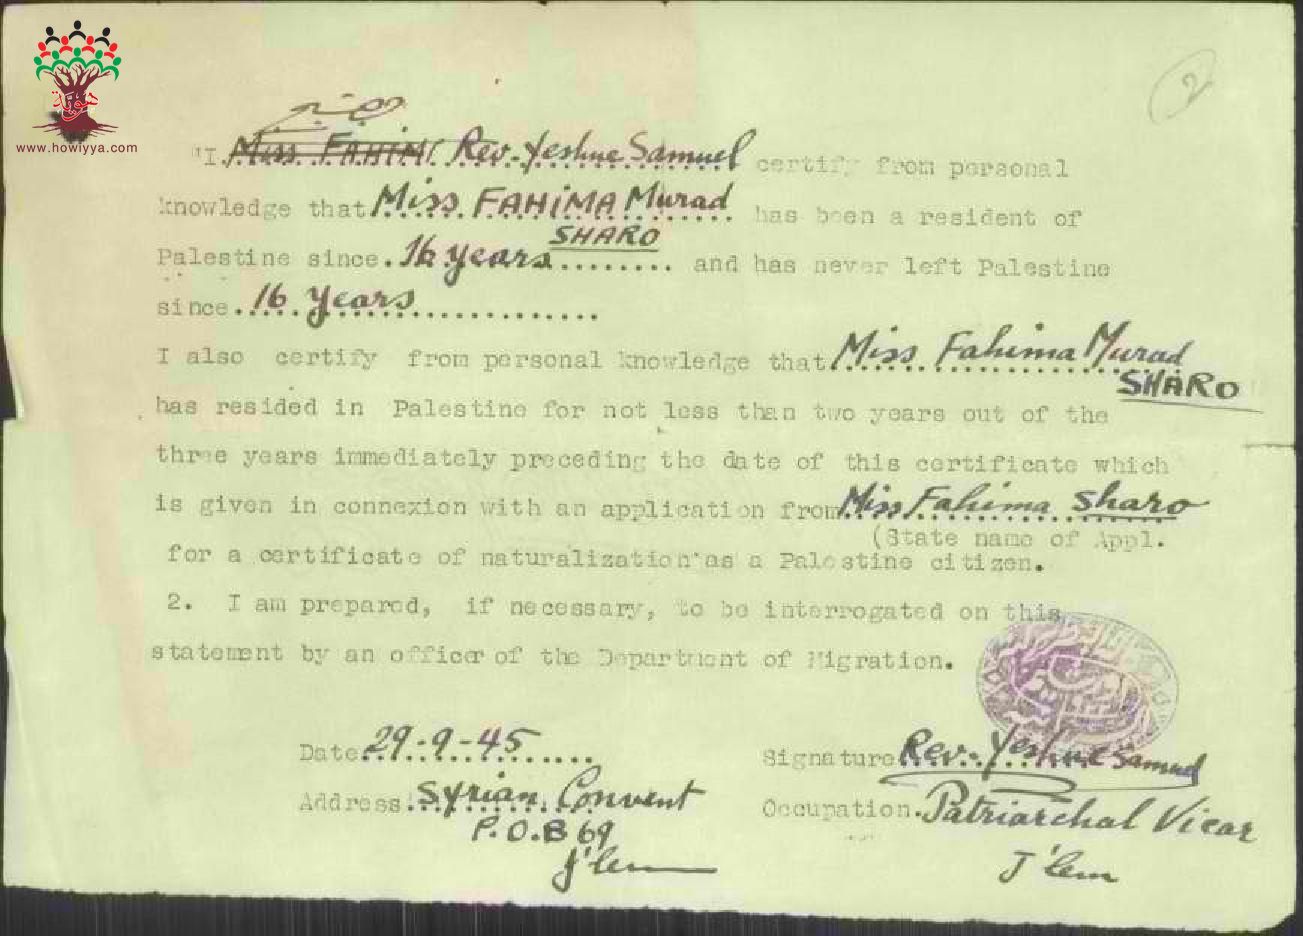 www.howiyya.com
2
"I. Miss FAHIM Rev. Yeshue Samuel certify from personal
knowledge that Miss FAHIMA Murad has been a resident of
SHARO
Palestine since. 16 years ........ and has never left Palestine
since. 16 years ....................
I also certify from personal knowledge that Miss Fahima Murad
SHARO
has resided in Palestine for not less than two years out of the
three years immediately preceding the date of this certificate which
is given in connexion with an application from Miss Fahima Sharo
(State name of Appl.
for a certificate of naturalization as a Palestine citizen.
2. I am prepared, if necessary, to be interrogated on this
statement by an officer of the Department of Migration.
Date 29-9-45 Signature Rev. Yeshue Samuel
Address. Syrian Convent Occupation. Patriarchal Vicar
P.O.B 69
J'lem J'lem